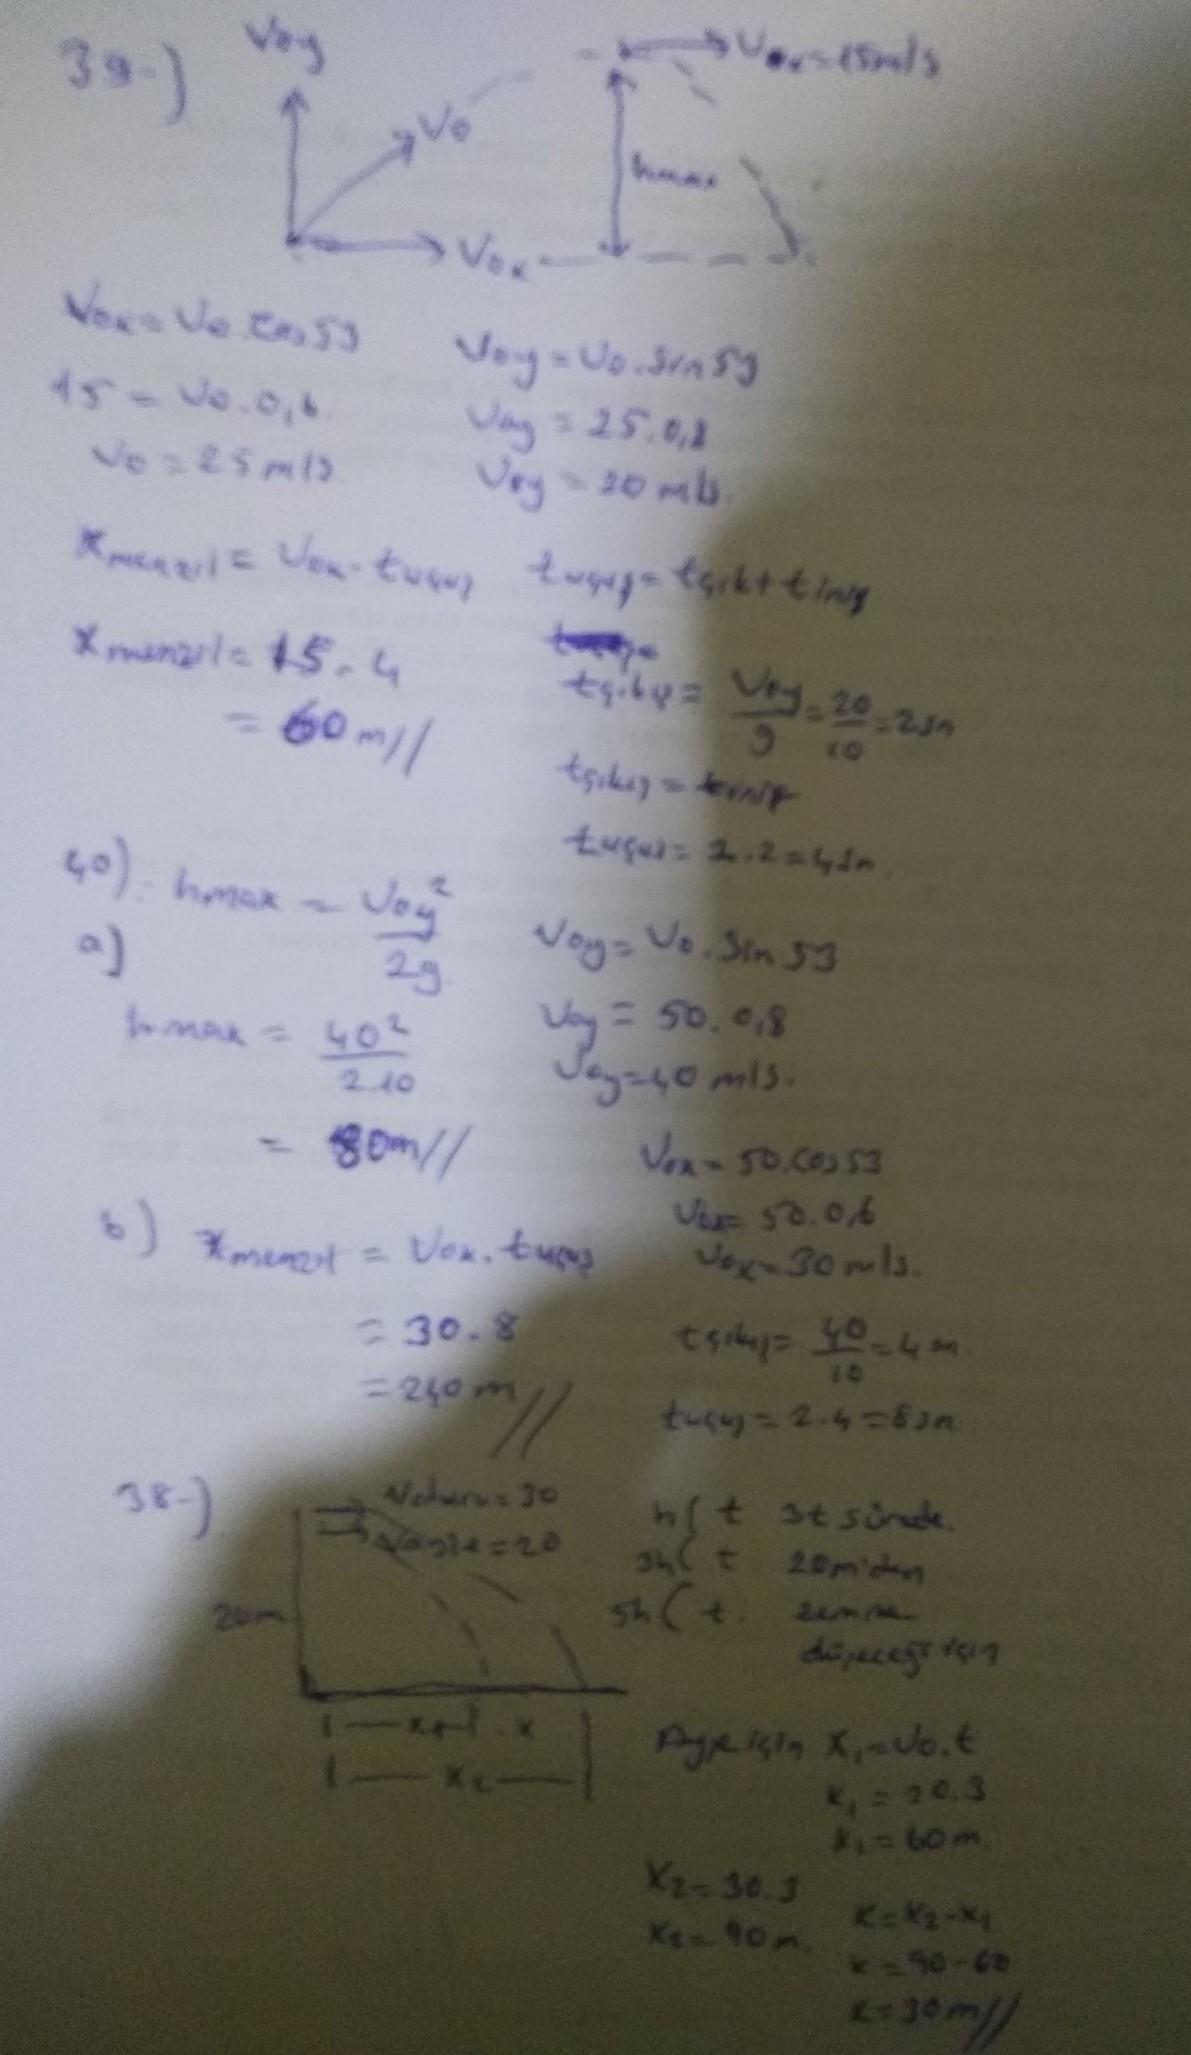 39-)
Voy
Vo
Vox
Vox=15m/s
hmax
Vox = Vo.cos53
15 = Vo.0,6
Vo = 25m/s
Voy = Vo.sin53
Voy = 25.0,8
Voy = 20 m/s.
xmenzil = Vox.tuçuş
xmenzil = 15.4
= 60m//
tuçuş = tçık+tiniş
tçıkış = Voy/g = 20/10 = 2sn
tçıkış = tiniş
tuçuş = 2.2=4sn.
40)
a)
hmax = Voy²/2g
hmax = 40²/2.10
= 80m//
Voy = Vo.Sin53
Voy = 50.0,8
Voy=40 m/s.
b) xmenzil = Vox.tuçuş
= 30.8
= 240m//
Vox = 50.cos53
Vox = 50.0,6
Vox=30m/s.
tçıkış = 40/10 = 4 sn
tuçuş = 2.4=8sn
38-)
=30
=20
20m
x1 x
x2
h( t 3t sürede.
3h( t 20m'den
5h( t. zemine
düşeceği için
Ayşe için x1=Vo.t
x1 = 20.3
x1 = 60m
x2=30.3
x2=90m.
x=x2-x1
x=90-60
x=30m//